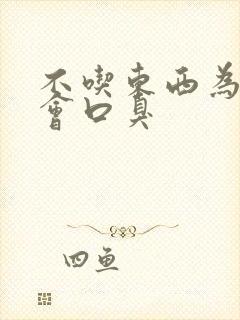 不喫東西為
會口臭
四魚